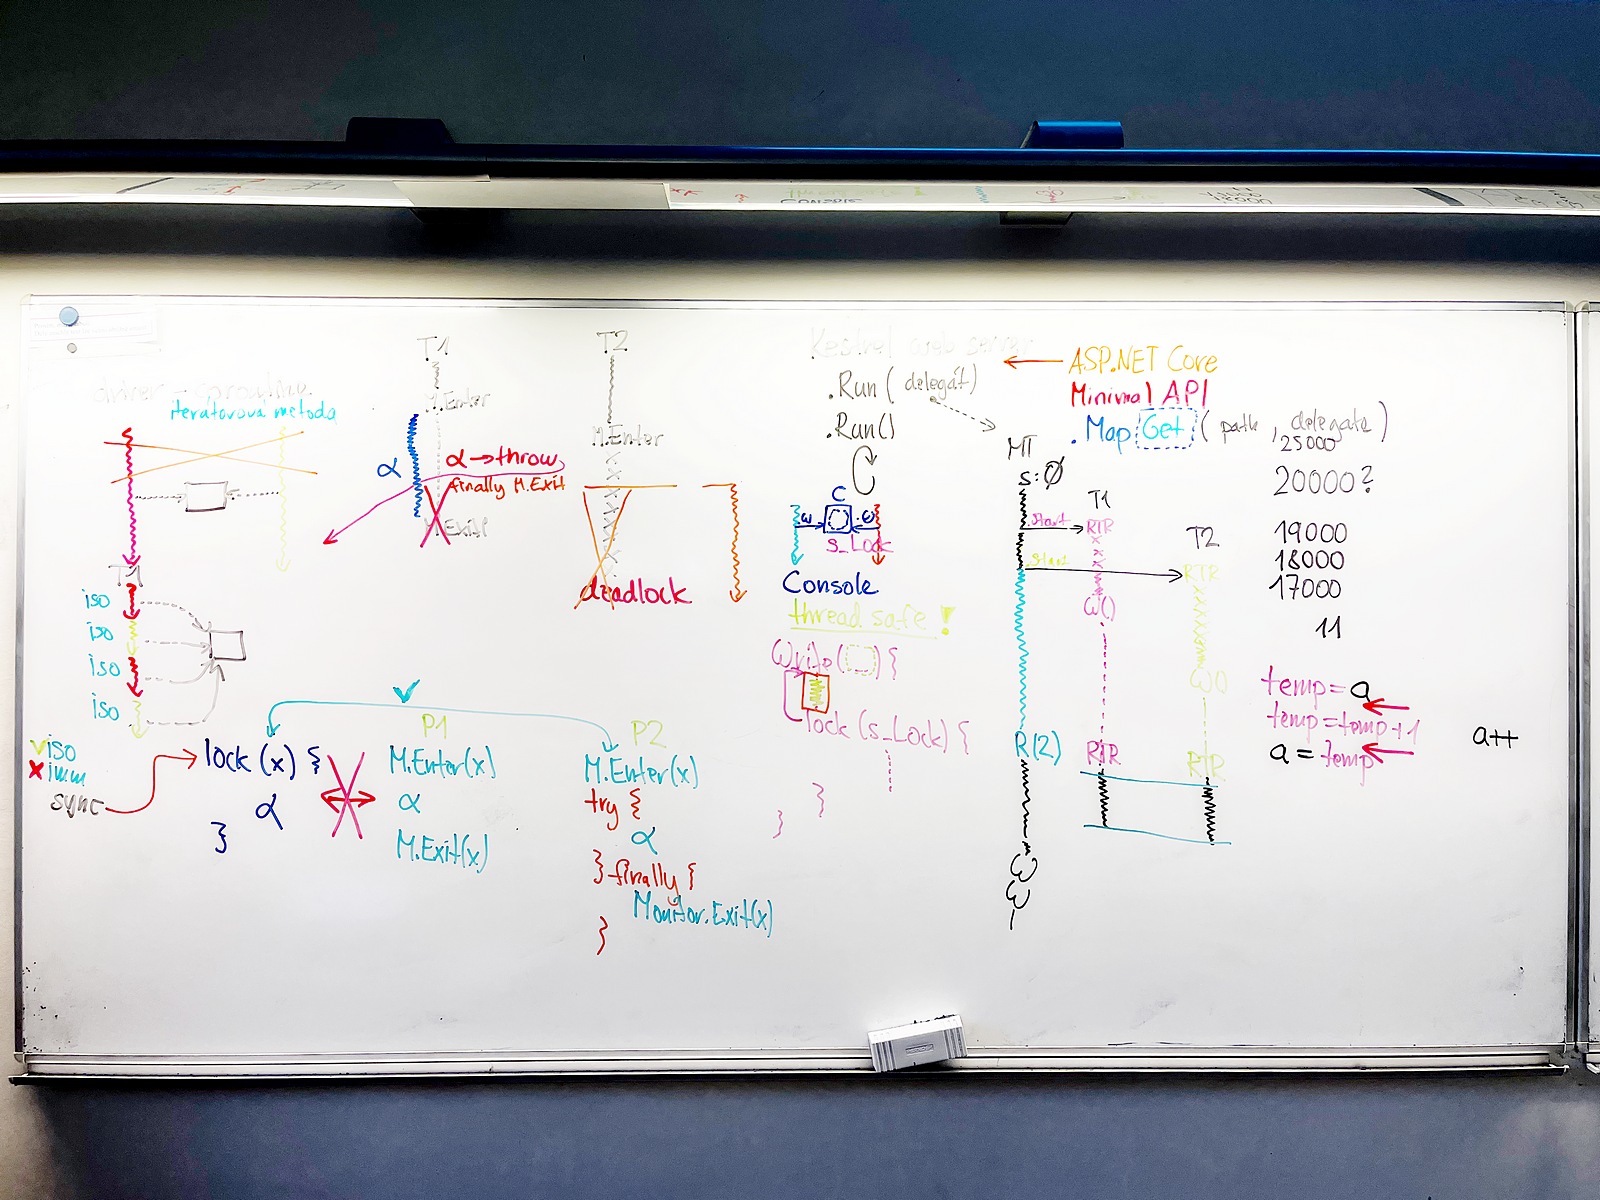 iterátorová metoda
T1
iso
iso
iso
iso
viso
x imm
sync
lock (x) {
α
}
T1
M.Enter
α
α → throw
finally M.Exit
M.Exit
T2
M.Enter
deadlock
P1
M.Enter(x)
α
M.Exit(x)
P2
M.Enter(x)
try {
α
} finally {
Monitor.Exit(x)
}
Kestrel web server
.Run( delegát)
.Run()
C
ω
s_Lock
Console
thread safe !
Write( ) {
lock (s_Lock) {
}
}
ASP.NET Core
Minimal API
.Map Get ( path , delegate )
MT
S:Ø
Start
Start
R(2)
T1
RTR
ω()
RTR
T2
RTR
ω()
RTR
25000
20000?
19000
18000
17000
11
temp = a
temp = temp+1
a = temp
a++